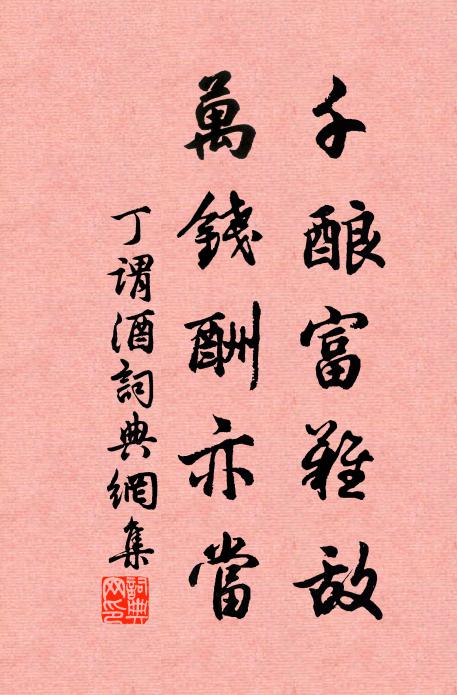 千酿富難敌
萬錢酬亦當
丁谓酒詞典網集
詞典网印